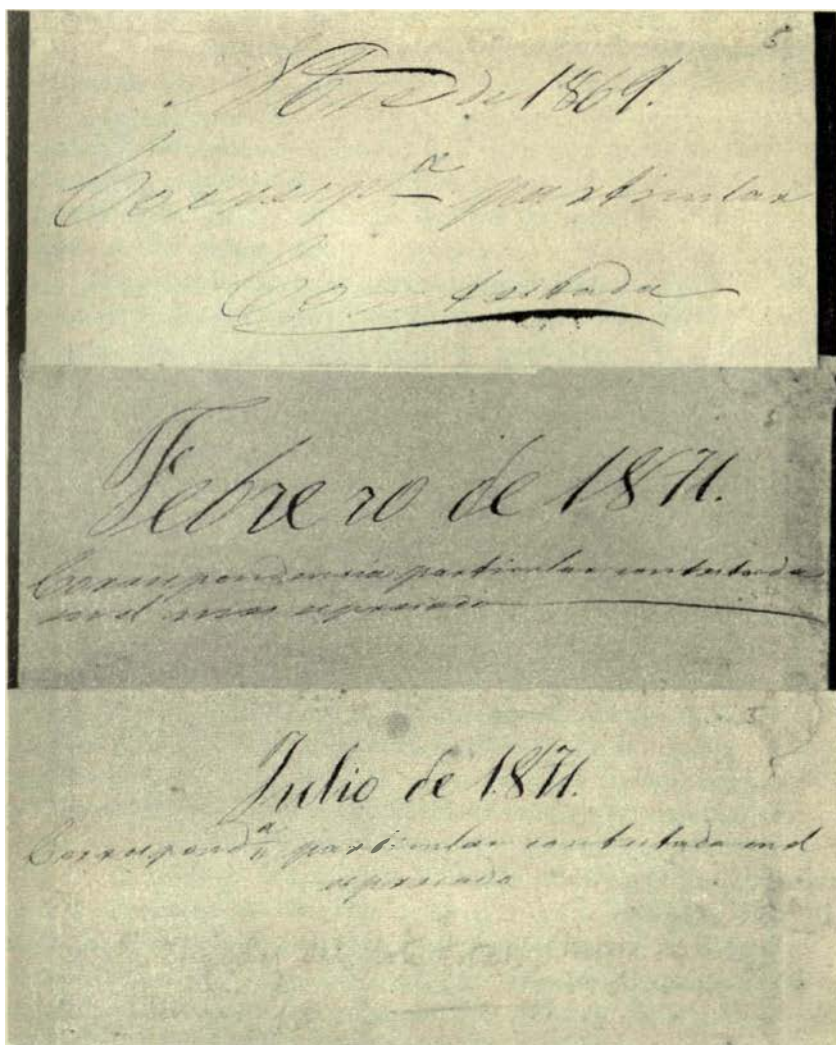 5
Nbre de 1869.
Corresp.ª particular
Contestada
5
Febrero de 1871.
Correspondencia particular contestada
en el mes espresado
5
Julio de 1871.
Correspondª particular contestada en el
espresado